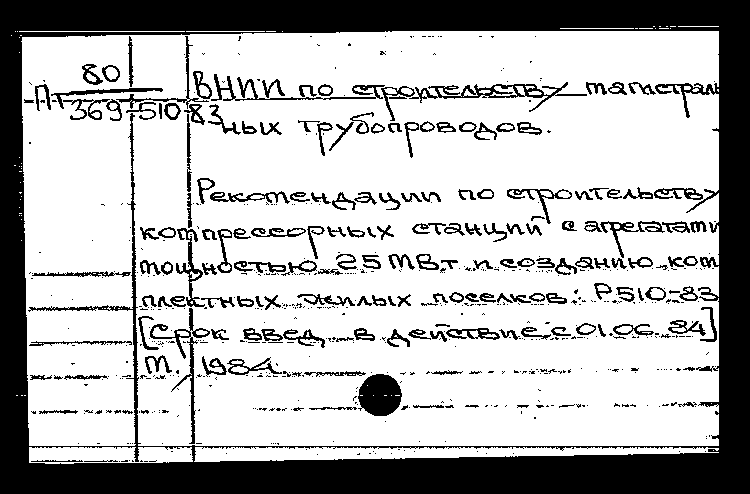 80
Пт 369-510-83
ВНИИ по строительству магистраль
ных трубопроводов.
Рекомендации по строительству
компрессорных станций с агрегатами
мощностью 25 МВт и созданию ком
плектных жилых поселков: Р510-83
[Срок введ. в действие с 01.06.84]
М., 1984